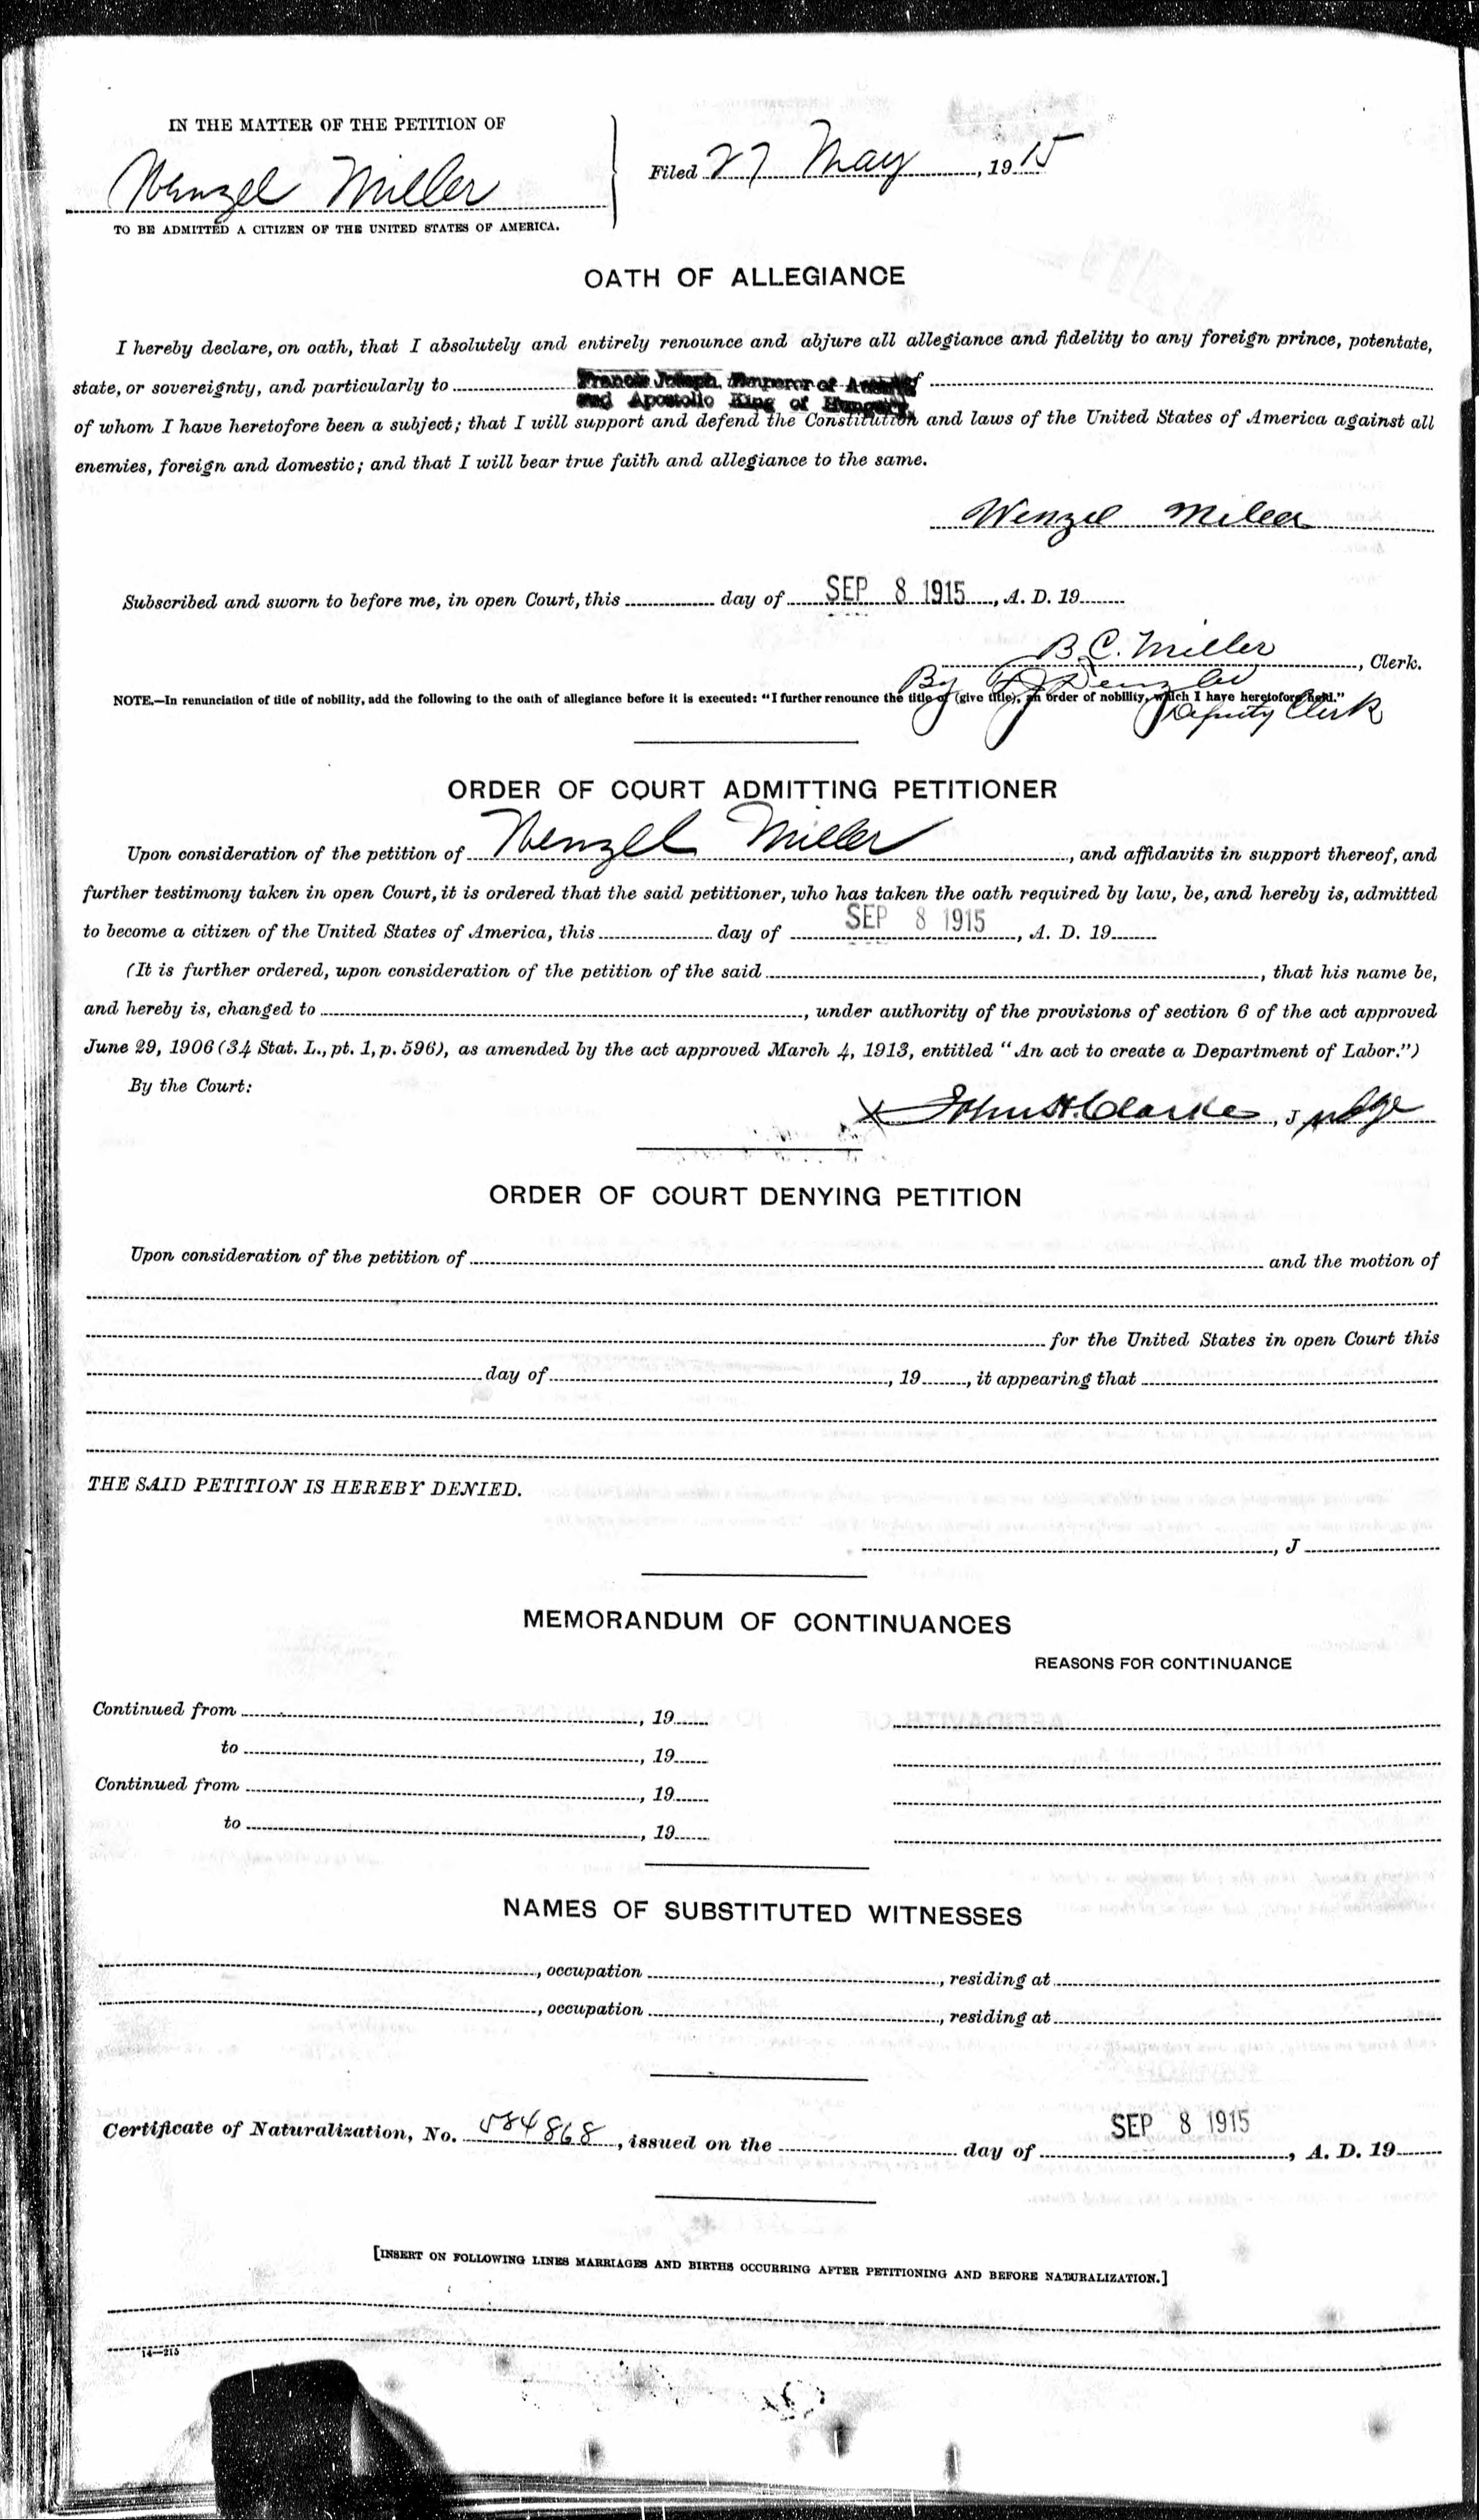 IN THE MATTER OF THE PETITION OF
Wenzel Miller
TO BE ADMITTED A CITIZEN OF THE UNITED STATES OF AMERICA.
Filed 27 May, 1915
OATH OF ALLEGIANCE
I hereby declare, on oath, that I absolutely and entirely renounce and abjure all allegiance and fidelity to any foreign prince, potentate,
state, or sovereignty, and particularly to Francis Joseph, Emperor of Austria
and Apostolic King of Hungary,
of whom I have heretofore been a subject; that I will support and defend the Constitution and laws of the United States of America against all
enemies, foreign and domestic; and that I will bear true faith and allegiance to the same.
Wenzel Miller
Subscribed and sworn to before me, in open Court, this day of SEP 8 1915, A. D. 19
B. C. Miller, Clerk.
By
NOTE.—In renunciation of title of nobility, add the following to the oath of allegiance before it is executed: "I further renounce the title of (give title), an order of nobility, which I have heretofore held."
Deputy Clerk
ORDER OF COURT ADMITTING PETITIONER
Upon consideration of the petition of Wenzel Miller, and affidavits in support thereof, and
further testimony taken in open Court, it is ordered that the said petitioner, who has taken the oath required by law, be, and hereby is, admitted
to become a citizen of the United States of America, this day of SEP 8 1915, A. D. 19
(It is further ordered, upon consideration of the petition of the said, that his name be,
and hereby is, changed to, under authority of the provisions of section 6 of the act approved
June 29, 1906 (34 Stat. L., pt. 1, p. 596), as amended by the act approved March 4, 1913, entitled "An act to create a Department of Labor.")
By the Court:
X John H. Clarke, Judge
ORDER OF COURT DENYING PETITION
Upon consideration of the petition of and the motion of
for the United States in open Court this
day of, 19, it appearing that
THE SAID PETITION IS HEREBY DENIED.
, J
MEMORANDUM OF CONTINUANCES
REASONS FOR CONTINUANCE
Continued from, 19
to, 19
Continued from, 19
to, 19
NAMES OF SUBSTITUTED WITNESSES
, occupation, residing at
, occupation, residing at
Certificate of Naturalization, No. 584868, issued on the day of SEP 8 1915, A. D. 19
[INSERT ON FOLLOWING LINES MARRIAGES AND BIRTHS OCCURRING AFTER PETITIONING AND BEFORE NATURALIZATION.]
14—215